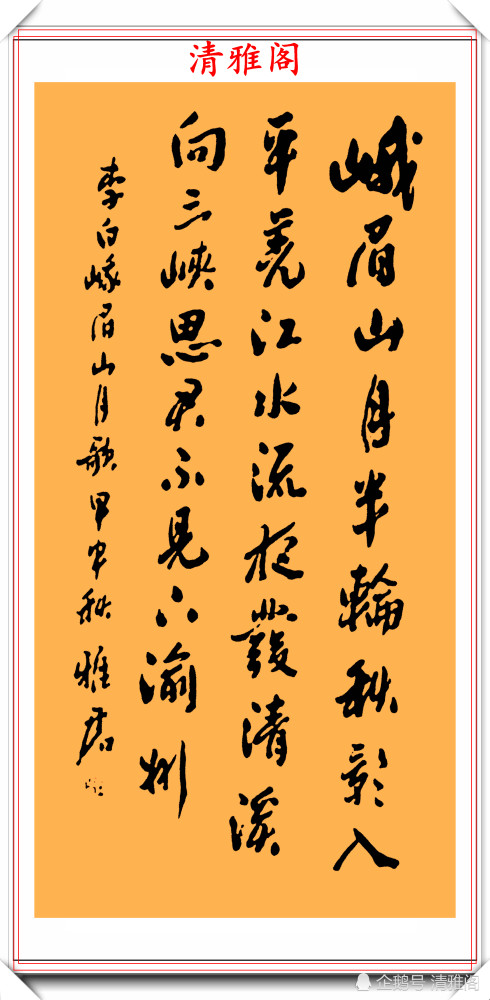 清雅阁
峨眉山月半輪秋影入
平羌江水流夜發清溪
向三峽思君不見下渝州
李白峨眉山月歌甲申秋雅君
企鹅号 清雅阁